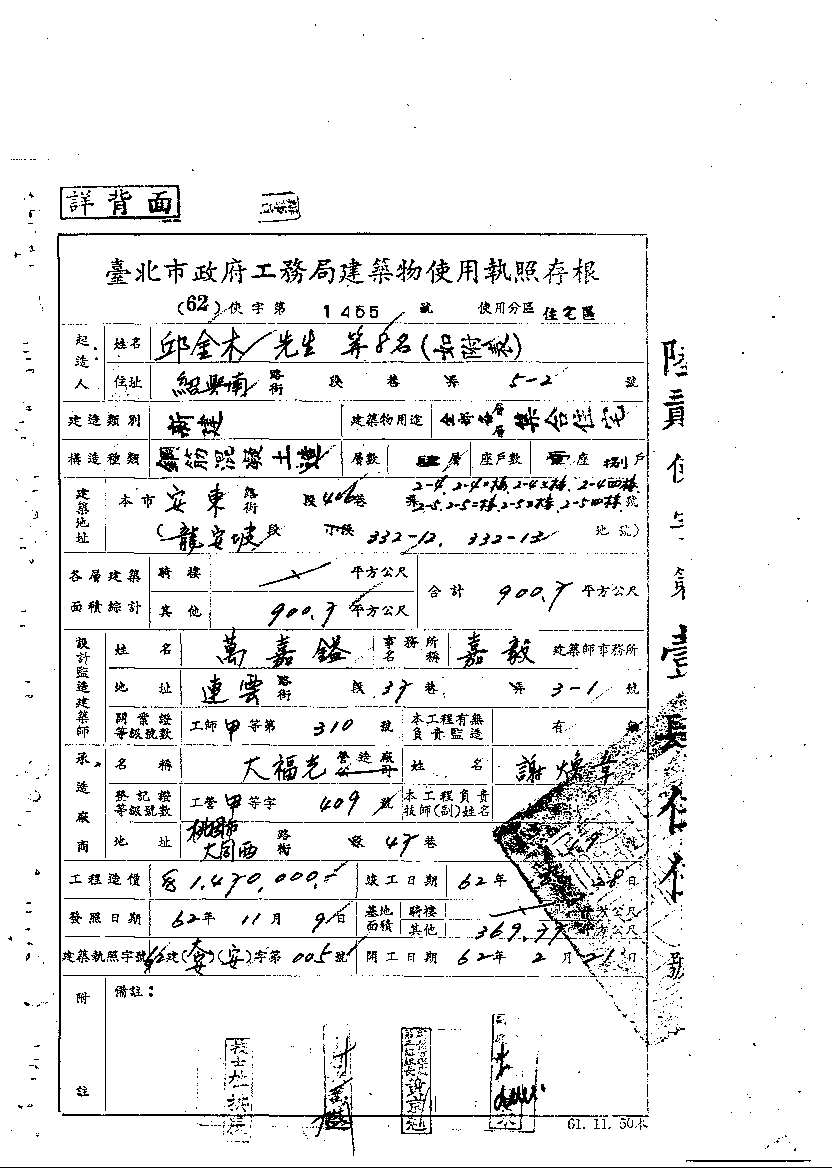 詳背面
臺北市政府工務局建築物使用執照存根
(62)使字第 1455 號 使用分區 住宅區
起造人 姓名 邱金木 先生 等8名(如附表)
住址 紹興南 路街 段 巷 弄 5-2 號
建造類別 新建 建築物用途 全部各層 集合住宅
構造種類 鋼筋混凝土造 層數 肆層 座戶數 壹座 捌戶
建築地址 本市 安東 路街 段 406巷 弄 2-4, 2-4二棟, 2-4三棟, 2-4四棟 2-5, 2-5二棟, 2-5三棟, 2-5四棟 號
(龍安坡段 小段 332-12, 332-13 地號)
各層建築面積綜計 騎樓 平方公尺 合計 900.7 平方公尺
其他 900.7 平方公尺
設計監造建築師 姓名 萬嘉鎰 事務所名稱 嘉毅 建築師事務所
地址 連雲 路街 段 37巷 弄 3-1 號
開業證等級號數 工師甲等第 310 號 本工程有無負責監造 有
承造廠商 名稱 大福光 營造廠 公司 姓名 謝煥章
登記證等級號數 工營甲等字 409 號 本工程負責技師(副)姓名
地址 桃園市大同西 路街 段 47巷
工程造價 1,470,000 竣工日期 62年 28日
發照日期 62年 11月 9日 基地面積 騎樓 平方公尺
其他 369.77 平方公尺
建築執照字號 62建( )(安)字第 005號 開工日期 62年 2月 21日
附註 備註:
61. 11. 50本
陸貳使字第壹肆伍伍號